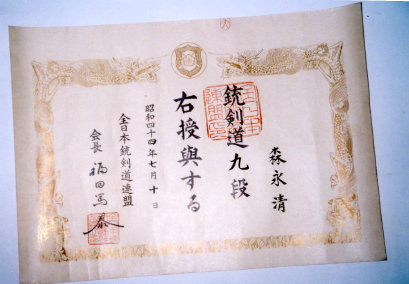 森永清
銃剣道九段
右授與する
昭和四十四年七月十日
全日本銃剣道連盟
会長 福田篤泰